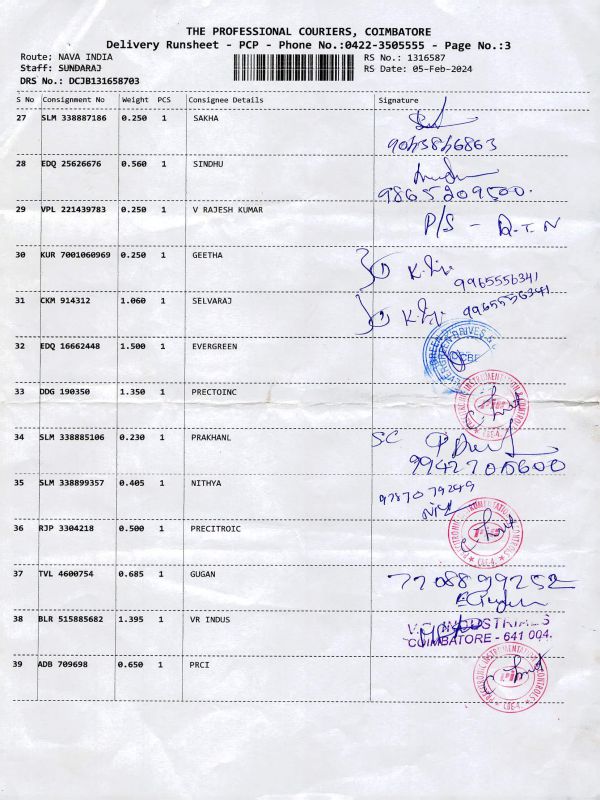 THE PROFESSIONAL COURIERS, COIMBATORE
Delivery Runsheet - PCP - Phone No.:0422-3505555 - Page No.:3
Route; NAVA INDIA RS No.: 1316587
Staff: SUNDARAJ RS Date: 05-Feb-2024
DRS No.: DCJB131658703
S No Consignment No Weight PCS Consignee Details Signature
27 SLM 338887186 0.250 1 SAKHA
28 EDQ 25626676 0.560 1 SINDHU
9865209500.
29 VPL 221439783 0.250 1 V RAJESH KUMAR P/S -
30 KUR 7001060969 0.250 1 GEETHA
9965556341
31 CKM 914312 1.060 1 SELVARAJ
9965556341
32 EDQ 16662448 1.500 1 EVERGREEN
33 DDG 190350 1.350 1 PRECTOINC
34 SLM 338885106 0.230 1 PRAKHANL SC
35 SLM 338899357 0.405 1 NITHYA 97870 79249
36 RJP 3304218 0.500 1 PRECITROIC
37 TVL 4600754 0.685 1 GUGAN 7708899252
38 BLR 515885682 1.395 1 VR INDUS
COIMBATORE - 641 004.
39 ADB 709698 0.650 1 PRCI